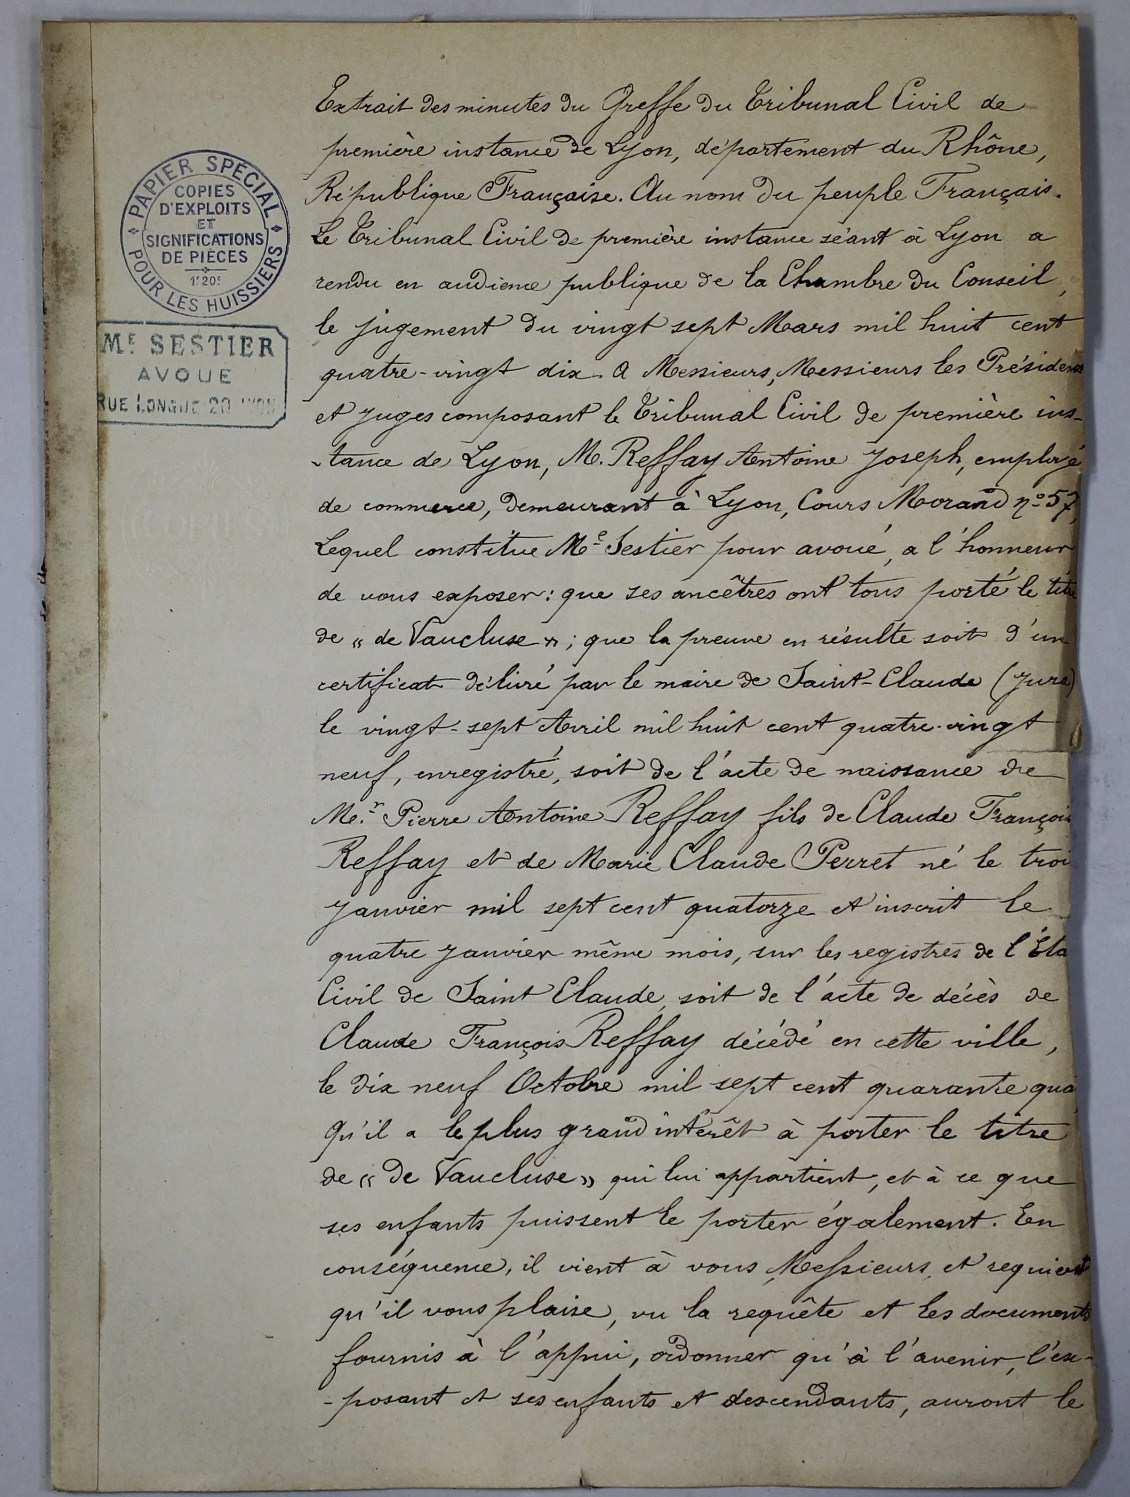 PAPIER SPECIAL
POUR LES HUISSIERS
COPIES
D'EXPLOITS
ET
SIGNIFICATIONS
DE PIÈCES
Mᵉ SESTIER
AVOUE
RUE LONGUE 20 LYON
Extrait des minutes du Greffe du Tribunal Civil de
première instance de Lyon, département du Rhône,
République Française. Au nom du peuple Français.
Le Tribunal Civil de première instance séant à Lyon a
rendu en audience publique de la Chambre du Conseil,
le jugement du vingt sept Mars mil huit cent
quatre-vingt dix. A Messieurs, Messieurs les Présidents
et Juges composant le Tribunal Civil de première ins-
-tance de Lyon, M. Reffay Antoine Joseph, employé
de commerce, demeurant à Lyon, Cours Morand nº 57,
Lequel constitue Mᵉ Sestier pour avoué, a l'honneur
de vous exposer: que ses ancêtres ont tous porté le titre
de « de Vaucluse »; que la preuve en résulte soit d'un
certificat délivré par le maire de Saint-Claude (Jura)
le vingt-sept Avril mil huit cent quatre-vingt
neuf, enregistré, soit de l'acte de naissance de
Mʳ Pierre Antoine Reffay fils de Claude François
Reffay et de Marie Claude Perret né le troi
Janvier mil sept cent quatorze et inscrit le
quatre Janvier même mois, sur les registres de l'Éta
Civil de Saint Claude, soit de l'acte de décès de
Claude François Reffay décédé en cette ville,
le dix neuf Octobre mil sept cent quarante qua
Qu'il a le plus grand intérêt à porter le titre
de « de Vaucluse » qui lui appartient, et à ce que
ses enfants puissent le porter également. En
conséquence, il vient à vous Messieurs, et requiert
qu'il vous plaise, vu la requête et les documents
fournis à l'appui, ordonner qu'à l'avenir, l'ex-
-posant et ses enfants et descendants, auront le